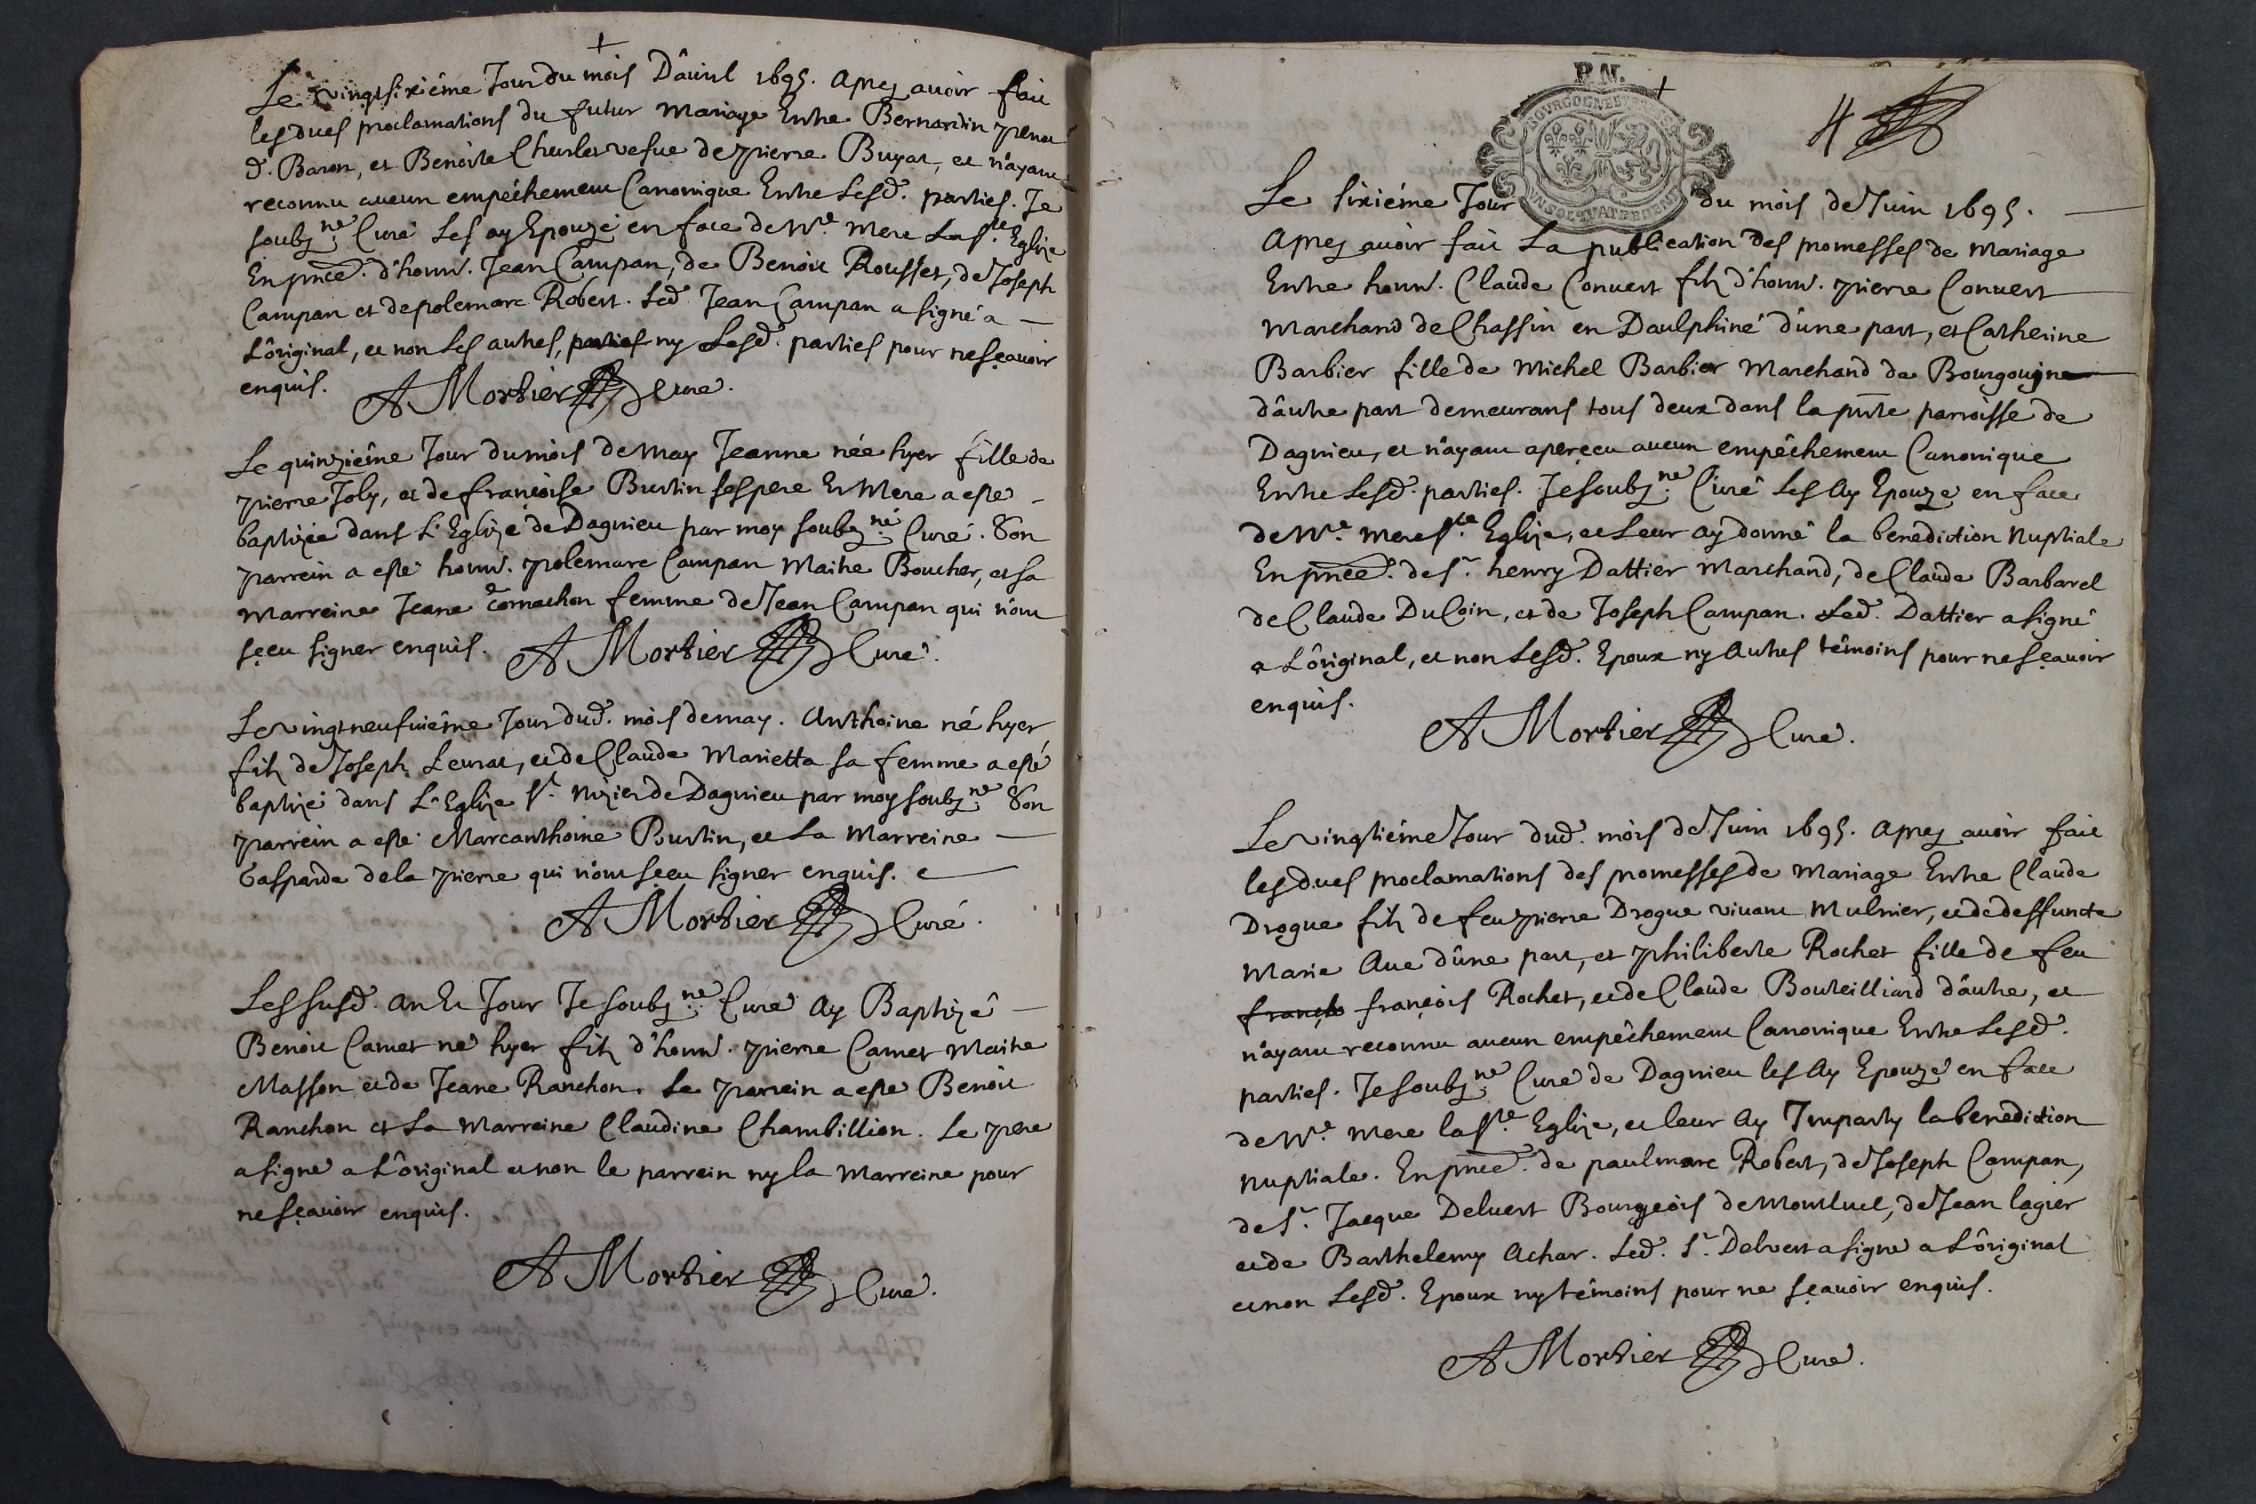 Le vingtsixiéme Jour du mois D'auril 1695. Apres auoir fait
les dues proclamations du futur Mariage Entre Bernardin
d. Baron, et Benoite vefue de pierre Buyat, et n'ayant
reconnu aucun empéchement Canonique Entre Lesd. parties. Je
soubz.né Curé Les ay Epouzé en face de N.e Mere La S.te Eglize
En pnce. d'honn. Jean Campan, de Benoit Rousset, de Joseph
Campan et de polemarc Robert. Led. Jean Campan a signé a
L'original, et non Les autres, parties ny Lesd. parties pour ne sçauoir
enquis. A Mortier Curé.
Le quinziéme Jour du mois de may Jeanne née hyer fille de
pierre Joly, et de françoise Burtin ses pere Et Mere a esté
baptizée dans L'Eglize de Dagnieu par moy soubz.né Curé. Son
parrein a esté honn. polemarc Campan Maitre Boucher, et sa
Marreine Jeane Cornachon femme de Jean Campan qui n'ont
sçeu signer enquis. A Mortier Curé.
Le vingtneufuiéme Jour dud. mois de may. Anthoine né hyer
filz de Joseph Leurat, et de Claude Marietta sa femme a esté
baptizé dans L'Eglize S.t Nizier de Dagnieu par moy soubz.né Son
parrein a esté Marcanthoine Burtin, et La Marreine
Gasparde de la pierre qui n'ont sçeu signer enquis.
A Mortier Curé.
Les susd. an Et Jour Je soubz.né Curé Ay Baptizé
Benoit Camet né hyer filz d'honn. pierre Camet Maitre
Masson et de Jeane Ranchon. Le parrein a esté Benoit
Ranchon et La Marreine Claudine Chambillion. Le pere
a signé a L'original et non le parrein ny la Marreine pour
ne sçauoir enquis.
A Mortier Curé.
P. N.
4
BOURGOGNE
UN SOL QUATRE DEN
Le sixiéme Jour du mois de Juin 1695.
Apres auoir fait La publication des promesses de Mariage
Entre honn. Claude Conuert filz d'honn. pierre Conuert
Marchand de Chassin en Daulphiné d'une part, et Catherine
Barbier fille de Michel Barbier Marchand de Bourgougne
d'autre part demeurans tous deux dans la pnte parroisse de
Dagnieu, et n'ayant aperçeu aucun empéchement Canonique
Entre Lesd. parties. Je soubz.né Curé Les Ay Epouzé en face
de N.e Mere S.te Eglize, et Leur ay donné la benediction Nuptiale
En pnce. de S.r henry Dattier Marchand, de Claude Barbarel
de Claude DuCoin, et de Joseph Campan. Led. Dattier a signé
a L'original, et non Lesd. Epoux ny Autres témoins pour ne sçauoir
enquis.
A Mortier Curé.
Le vingtiéme Jour dud. mois de Juin 1695. Apres auoir fait
les dues proclamations des promesses de Mariage Entre Claude
Drogue filz de feu pierre Drogue viuant Mulnier, et de deffuncte
Marie Aue d'une part, et philiberte Rochet fille de feu
françois Rochet, et de Claude Bouteilliard d'autre, et
n'ayant reconnu aucun empéchement Canonique Entre Lesd.
parties. Je soubz.né Curé de Dagnieu les Ay Epouzé en face
de N.e Mere la S.te Eglize, et leur Ay Imparty la benediction
Nuptiale. En pnce. de paulmarc Robert, de Joseph Campan,
de S.r Jacque Deluert Bourgeois de Montluel, de Jean lagier
et de Barthelemy Achar. Led. S.r Deluert a signé a L'original
et non Lesd. Epoux ny témoins pour ne sçauoir enquis.
A Mortier Curé.